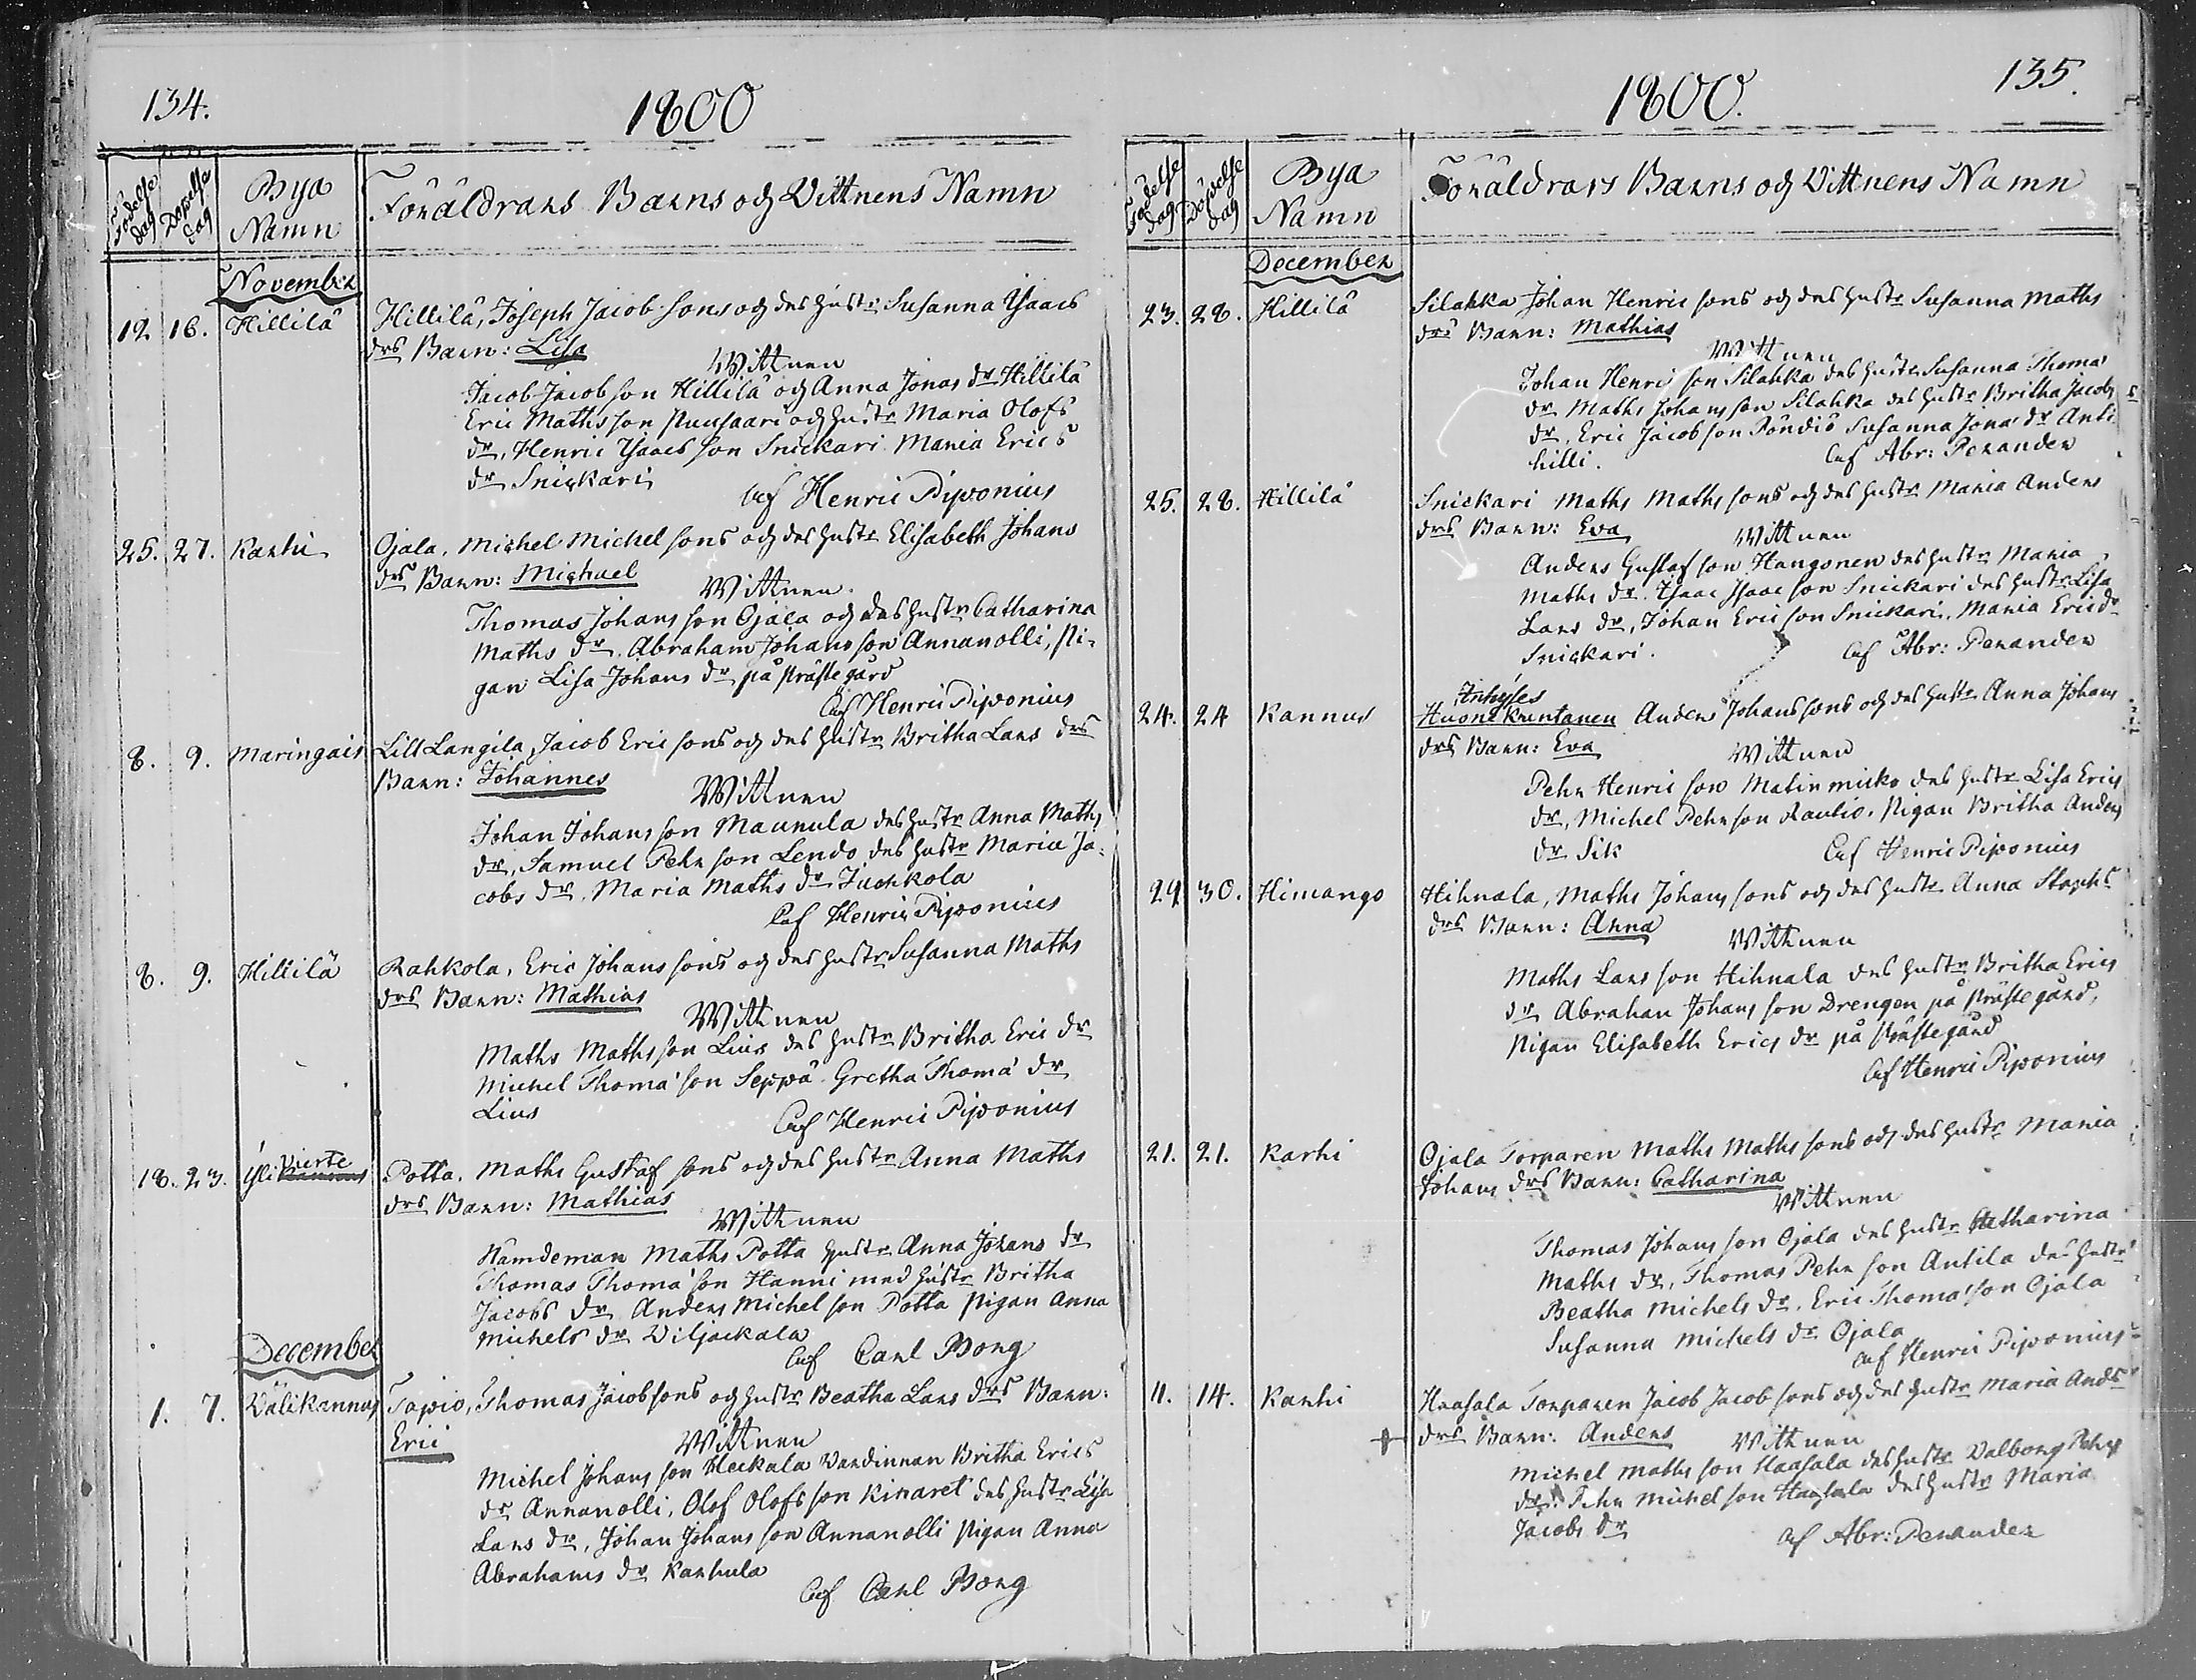 134.
1800
Födelse dag
Döpelse dag
Bya Namn
Föräldrars Barns och Vittnens Namn
November
12 16. Hillilä Hillilä, Joseph Jacob sons och des hustr Susanna Isaacs
drs Barn: Lisa
Wittnen
Jacob Jacobson Hillilä och Anna Jonas dr Hillilä
Eric Mathsson Puusaari och hustr Maria Olofs
dr, Henric Isaacs son Snickari Maria Erics
dr Snickari
Af Henric Piponius
25. 27. Karhi Ojala, Michel Michel sons och des hustr Elisabeth Johans
drs Barn: Michael
Wittnen
Thomas Johans son Ojala och des hustr Catharina
Maths dr. Abraham Johans son Annanolli, Pi-
gan Lisa Johans dr på Prästegård
Af Henric Piponius
8. 9. Maringais Lill Langila, Jacob Eric sons och des hustr Britha Lars drs
Barn: Johannes
Wittnen
Johan Johans son Maunula des hustr Anna Maths
dr, Samuel Pehr son Lendo des hustr Maria Ja-
cobs dr. Maria Maths dr Juchkola
Af Henric Piponius
8. 9. Hillilä Rahkola, Eric Johans sons och des hustr Susanna Maths
drs Barn: Mathias
Wittnen
Maths Mathsson Lius des hustr Britha Eric dr
Michel Thoma' son Seppä. Gretha Thoma' dr
Lius
Af Henric Piponius
18. 23. Yli vierte Potta. Maths Gustaf sons och des hustr Anna Maths
drs Barn: Mathias
Wittnen
Nämdeman Maths Potta hustr Anna Johans dr
Thomas Thoma' son Hanni med hustr Britha
Jacobs dr Anders Michel son Potta Pigan Anna
Michels dr Wiljackala
Af Carl Borg
December
1. 7. Välikannus Tapio, Thomas Jacobsons och hustr Beatha Lars drs Barn:
Eric
Wittnen
Michel Johans son Heckala Värdinnan Britha Erics
dr Annanolli, Olof Olofs son Kinaret des hustr Lisa
Lars dr, Johan Johans son Annanolli Pigan Anna
Abrahams dr Karhula
Af Carl Borg
135.
1800.
Födelse dag
Döpelse dag
Bya Namn
Föräldrars Barns och Vittnens Namn
December
23. 28. Hillilä Silahka Johan Henric sons och des hustr Susanna Maths
drs Barn: Mathias
Wittnen
Johan Henric son Silahka des hustr Susanna Thoma'
dr Maths Johans son Silahka des hustr Britha Jacobs
dr, Eric Jacob son Pöndiö Susanna Jona' dr Anti
hilli.
Af Abr: Perander
25. 28. Hillilä Snickari Maths Maths sons och des hustr Maria Anders
drs Barn: Eva
Wittnen
Anders Gustaf son Hangonen des hustr Maria
Maths dr. Isaac Isaac son Snickari des hustr Lisa
Lars dr, Johan Eric son Snickari, Maria Eric dr
Snickari.
Af Abr: Perander
24. 24 Kannus Inhyses
Huonekuntanen Anders Johans sons och des hustr Anna Johans
drs Barn: Eva
Wittnen
Pehr Henric son Matinmicko des hustr Lisa Erics
dr, Michel Pehr son Rautio. Pigan Britha Anders
dr Sik
Af Henric Piponius
29 30. Himango Hihnala, Maths Johans sons och des hustr Anna Staphs
drs Barn: Anna
Wittnen
Maths Lars son Hihnala des hustr Britha Erics
dr Abraham Johans son Drengen på Prästegård,
Pigan Elisabeth Erics dr på Prästegård
Af Henric Piponius
21. 21. Karhi Ojala Torparen Maths Maths sons och des hustr Maria
Johans drs Barn: Catharina
Wittnen
Thomas Johans son Ojala des hustr Catharina
Maths dr, Thomas Pehr son Antila des hustr
Beatha Michels dr, Eric Thoma' son Ojala
Susanna Michels dr Ojala
Af Henric Piponius
11. 14. Karhi Haasala Torparen Jacob Jacob sons och des hustr Maria Ands
+ drs Barn: Anders
Wittnen
Michel Maths son Haasala des hustr Valborg Pehrs
dr. Pehr Michel son Haasala des hustr Maria
Jacobs dr
Af Abr: Perander